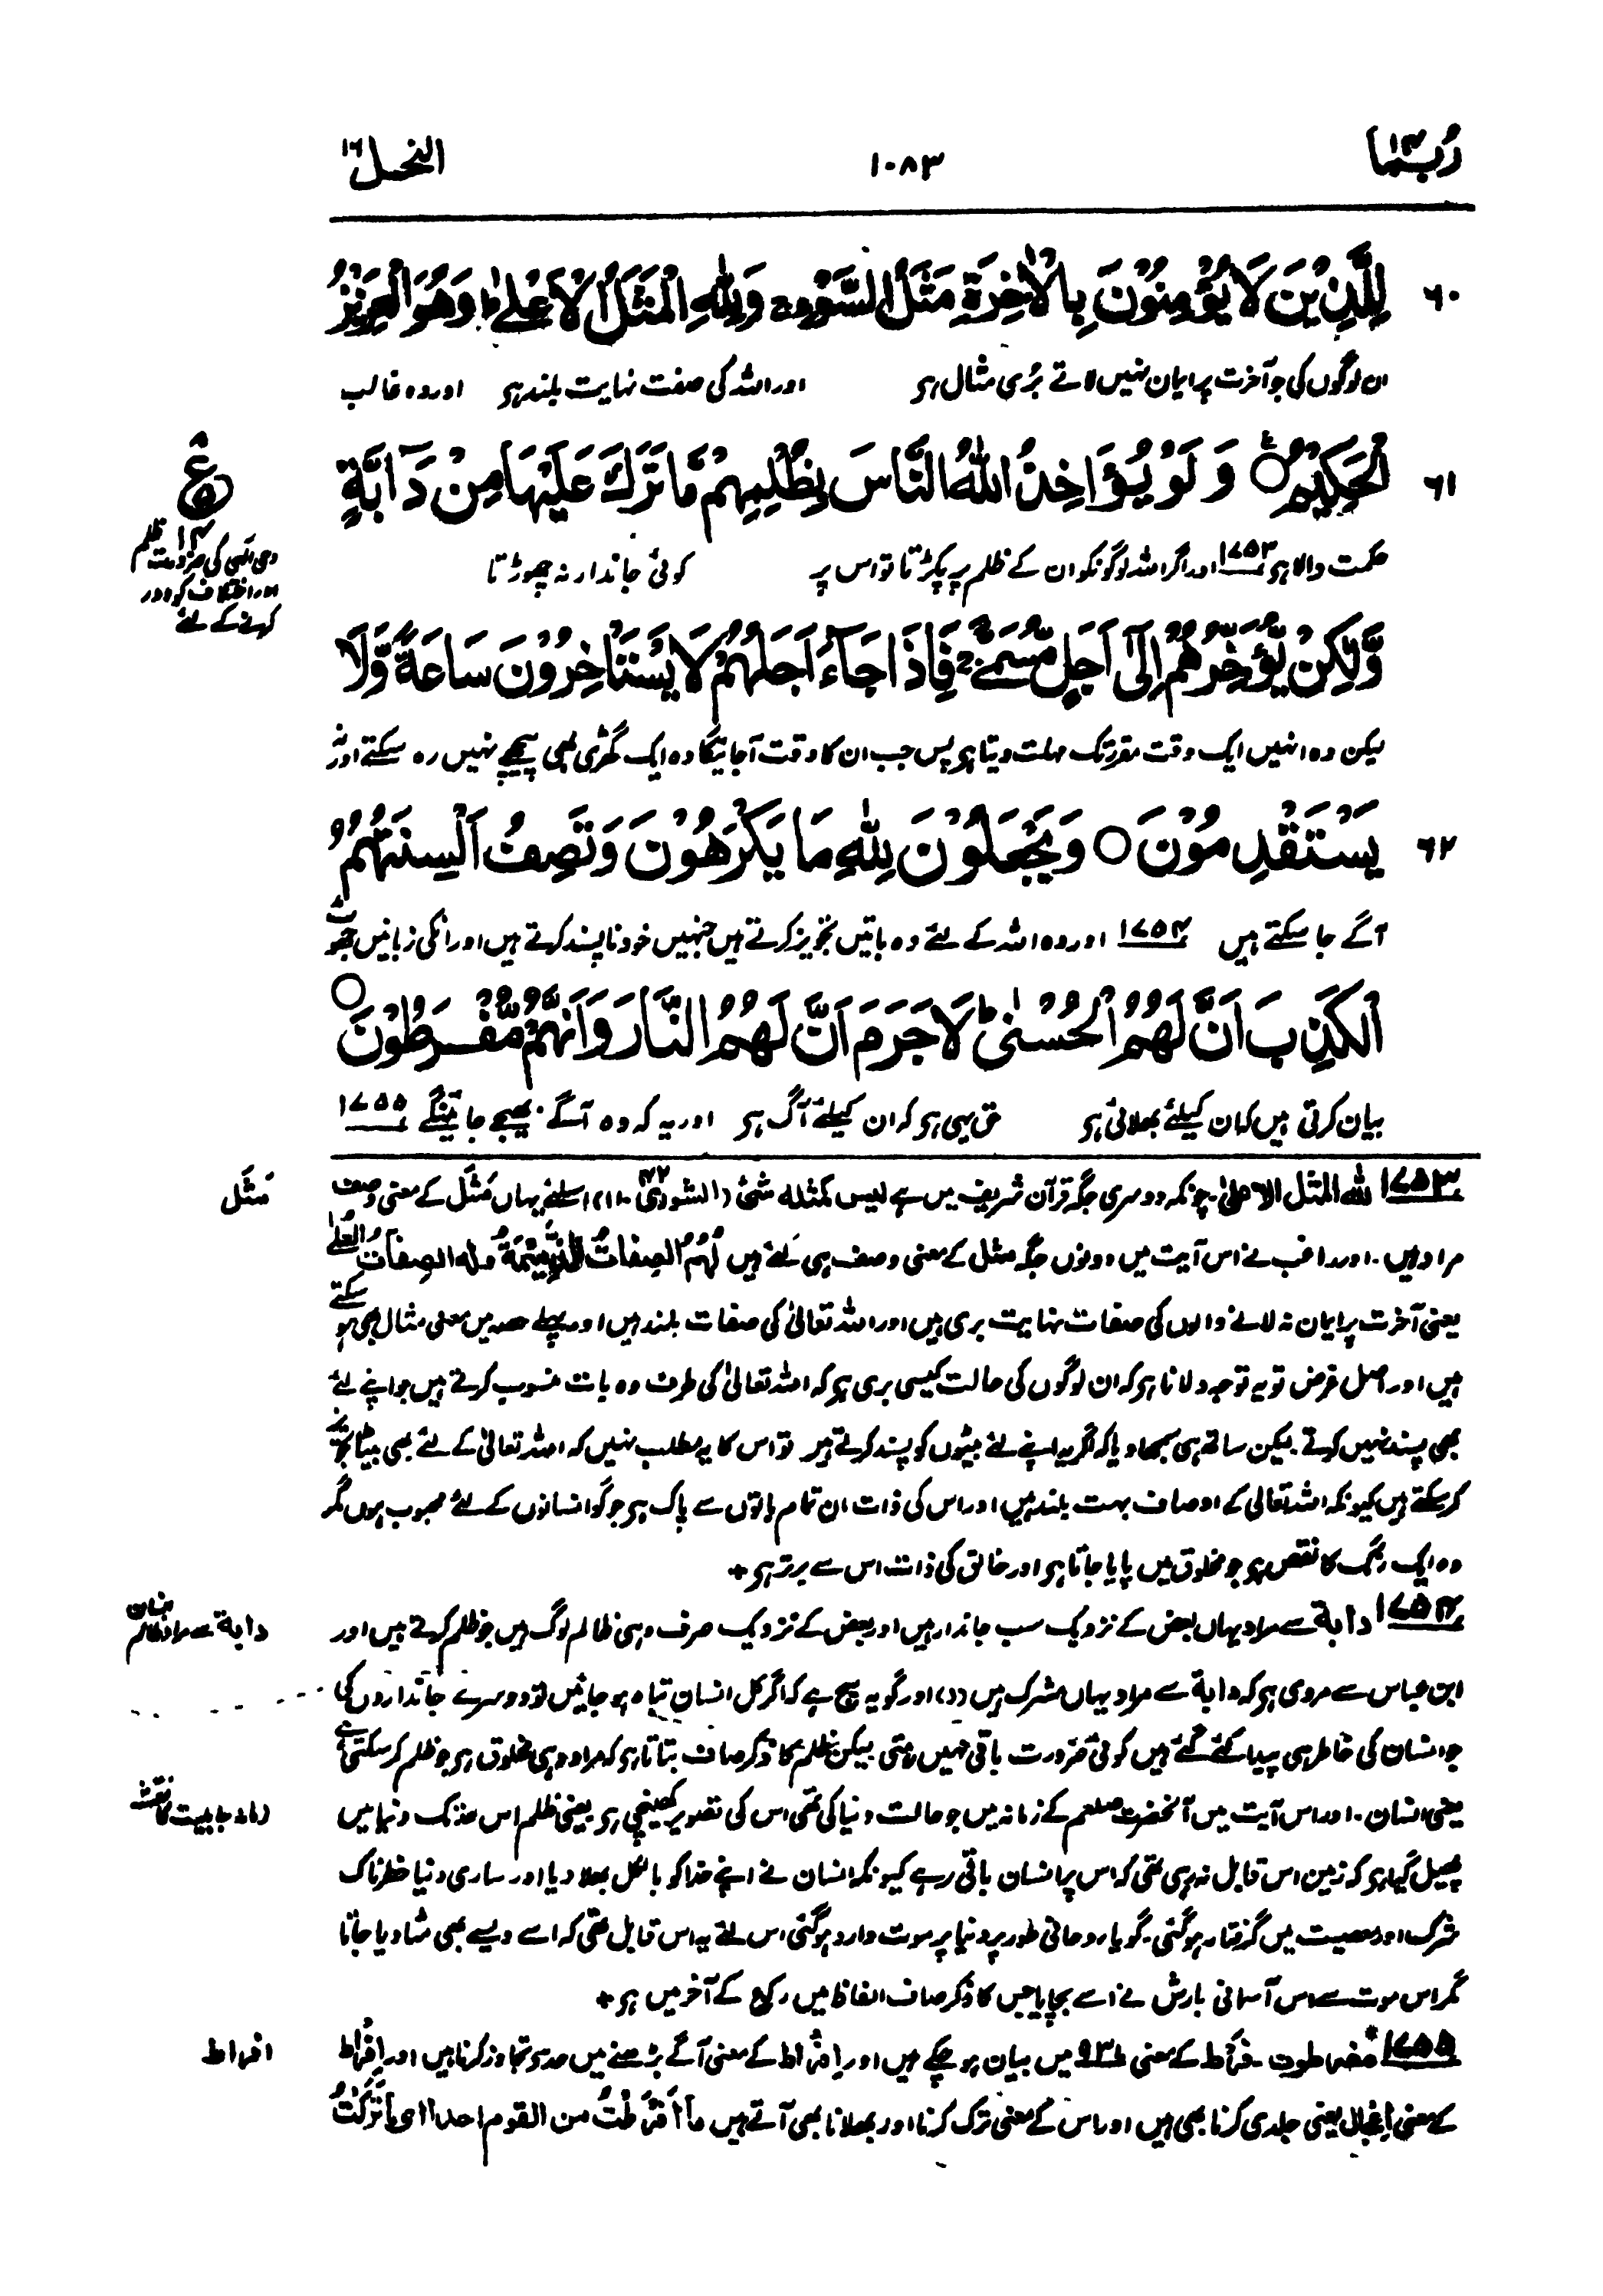 رُبَمَا ۱۴
۱۰۸۳
النحل ۱۶
۶۰ لِلَّذِيْنَ لَا يُؤْمِنُوْنَ بِالْاٰخِرَةِ مَثَلُ السَّوْءِ ۚ وَلِلّٰهِ الْمَثَلُ الْاَعْلٰى ؕ وَهُوَ الْعَزِيْزُ
ان لوگوں کی جو آخرت پر ایمان نہیں لاتے بُری مثال ہی اور اللہ کی صفت نہایت بلند ہی اور وہ غالب
۶۱ الْحَكِيْمُ ○ وَلَوْ يُؤَاخِذُ اللّٰهُ النَّاسَ بِظُلْمِهِمْ مَّا تَرَكَ عَلَيْهَا مِنْ دَآبَّةٍ
حکمت والا ہی ۱۷۵۳ اور اگر اللہ لوگونکو ان کے ظلم پر پکڑتا تو اس پر کوئی جاندار نہ چھوڑتا
ع
۱۳
وحی الٰہی کی ضرورت ظلم
اور اختلاف کو دور
کرنے کے لئے
وَّلٰكِنْ يُّؤَخِّرُهُمْ اِلٰٓى اَجَلٍ مُّسَمًّى ۚ فَاِذَا جَآءَ اَجَلُهُمْ لَا يَسْتَاْخِرُوْنَ سَاعَةً وَّلَا
لیکن وہ انہیں ایک وقت مقرر تک مہلت دیتا ہی پس جب ان کا وقت آجائیگا وہ ایک گھڑی بھی پیچھے نہیں رہ سکتے اور نہ
۶۲ يَسْتَقْدِمُوْنَ ○ وَيَجْعَلُوْنَ لِلّٰهِ مَا يَكْرَهُوْنَ وَتَصِفُ اَلْسِنَتُهُمُ
آگے جا سکتے ہیں ۱۷۵۴ اور وہ اللہ کے لئے وہ باتیں تجویز کرتے ہیں جنہیں خود ناپسند کرتے ہیں اور انکی زبانیں جھوٹ
الْكَذِبَ اَنَّ لَهُمُ الْحُسْنٰى ؕ لَا جَرَمَ اَنَّ لَهُمُ النَّارَ وَاَنَّهُمْ مُّفْرَطُوْنَ ○
بیان کرتی ہیں کہ ان کیلئے بھلائی ہی حق یہی ہی کہ ان کیلئے آگ ہی اور یہ کہ وہ آگے بھیجے جائینگے ۱۷۵۵
۱۷۵۳ للہ المثل الاعلیٰ۔ چونکہ دوسری جگہ قرآن شریف میں ہے لیس کمثلہ شئ (الشوریٰ ۴۲۔۱۱) اسلئے یہاں مَثَل کے معنی وصف
مَثَل
مراد ہیں۔ اور راغب نے اس آیت میں دونوں جگہ مثل کے معنی وصف ہی لئے ہیں لَهُمُ الصفاتُ الذَّمِيْمَةُ وله الصفاتُ العُلٰى
یعنی آخرت پر ایمان نہ لانے والوں کی صفات نہایت بری ہیں اور اللہ تعالیٰ کی صفات بلند ہیں اور پہلے حصہ میں معنی مثال بھی ہو سکتے
ہیں اور اصل غرض تو یہ توجہ دلانا ہی کہ ان لوگوں کی حالت کیسی بری ہی کہ اللہ تعالیٰ کی طرف وہ بات منسوب کرتے ہیں جو اپنے لئے
بھی پسند نہیں کرتے۔ لیکن ساتھ ہی سمجھا دیا کہ اگر یہ اپنے لئے بیٹوں کو پسند کرتے ہیں تو اس کا یہ مطلب نہیں کہ اللہ تعالیٰ کے لئے بھی بیٹا تجویز
کر سکتے ہیں کیونکہ اللہ تعالیٰ کے اوصاف بہت بلند ہیں اور اس کی ذات ان تمام باتوں سے پاک ہی جو گو انسانوں کے لئے محبوب ہوں مگر
وہ ایک رنگ کا نقص ہی جو مخلوق میں پایا جاتا ہی اور خالق کی ذات اس سے برتر ہی +
۱۷۵۴ دابة سے مراد یہاں بعض کے نزدیک سب جاندار ہیں اور بعض کے نزدیک صرف وہی ظالم لوگ ہیں جو ظلم کرتے ہیں اور
دابة سے مراد ظالم انسان
ابن عباس سے مروی ہی کہ دابة سے مراد یہاں مشرک ہیں (د) اور گو یہ سچ ہے کہ اگر کل انسان تباہ ہو جائیں تو دوسرے جانداروں کی
جو انسان کی خاطر ہی پیدا کئے گئے ہیں کوئی ضرورت باقی نہیں رہتی لیکن ظلم کا ذکر صاف بتاتا ہی کہ مراد وہی مخلوق ہی جو ظلم کر سکتی ہے
یعنی انسان۔ اور اس آیت میں آنحضرت صلعم کے زمانہ میں جو حالت دنیا کی تھی اس کی تصویر کھینچی ہی یعنی ظلم اس حد تک دنیا میں
زمانہ جاہلیت کا نقشہ
پھیل گیا ہی کہ زمین اس قابل نہ رہی تھی کہ اس پر انسان باقی رہے کیونکہ انسان نے اپنے خدا کو بالکل بھلا دیا اور ساری دنیا خطرناک
شرک اور معصیت میں گرفتار ہو گئی۔ گویا روحانی طور پر دنیا پر موت وارد ہو گئی اس لئے یہ اس قابل تھی کہ اسے ویسے بھی مٹا دیا جاتا
مگر اس موت سے اس آسمانی بارش نے اسے بچا یا جس کا ذکر صاف الفاظ میں رکوع کے آخر میں ہی +
۱۷۵۵ مفرطون۔ فرَّط کے معنی ۹۳۱ میں بیان ہو چکے ہیں اور اِفْراط کے معنی آگے بڑھنے میں حد سے تجاوز کرنا ہیں اور اِفْراط
افراط
کے معنی اِعْجال یعنی جلدی کرنا بھی ہیں اور اس کے معنی ترک کرنا اور بھلانا بھی آتے ہیں ما اَفْرَطْتُ من القوم احداً ای ما تَرَكْتُ